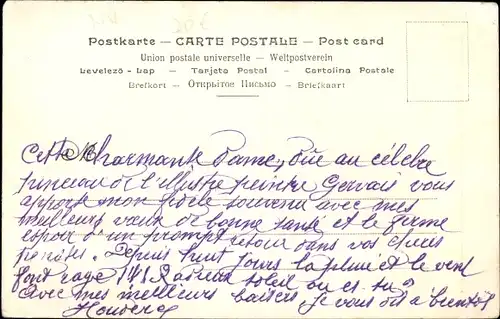 Postkarte — CARTE POSTALE — Post card
Union postale universelle — Weltpostverein
Levelező-Lap — Tarjeta Postal — Cartolina Postale
Brefkort — Открытое Письмо — Briefkaart
Cette charmante Dame, due au célèbre
pinceau de l'illustre peintre Gervais vous
apporte mon fidèle souvenir avec mes
meilleurs vœux de bonne santé et le ferme
espoir d'un prompt retour dans vos
Depuis huit jours la pluie et le vent
font rage soleil où es tu?
Avec mes meilleurs baisers, je vous dis à bientôt